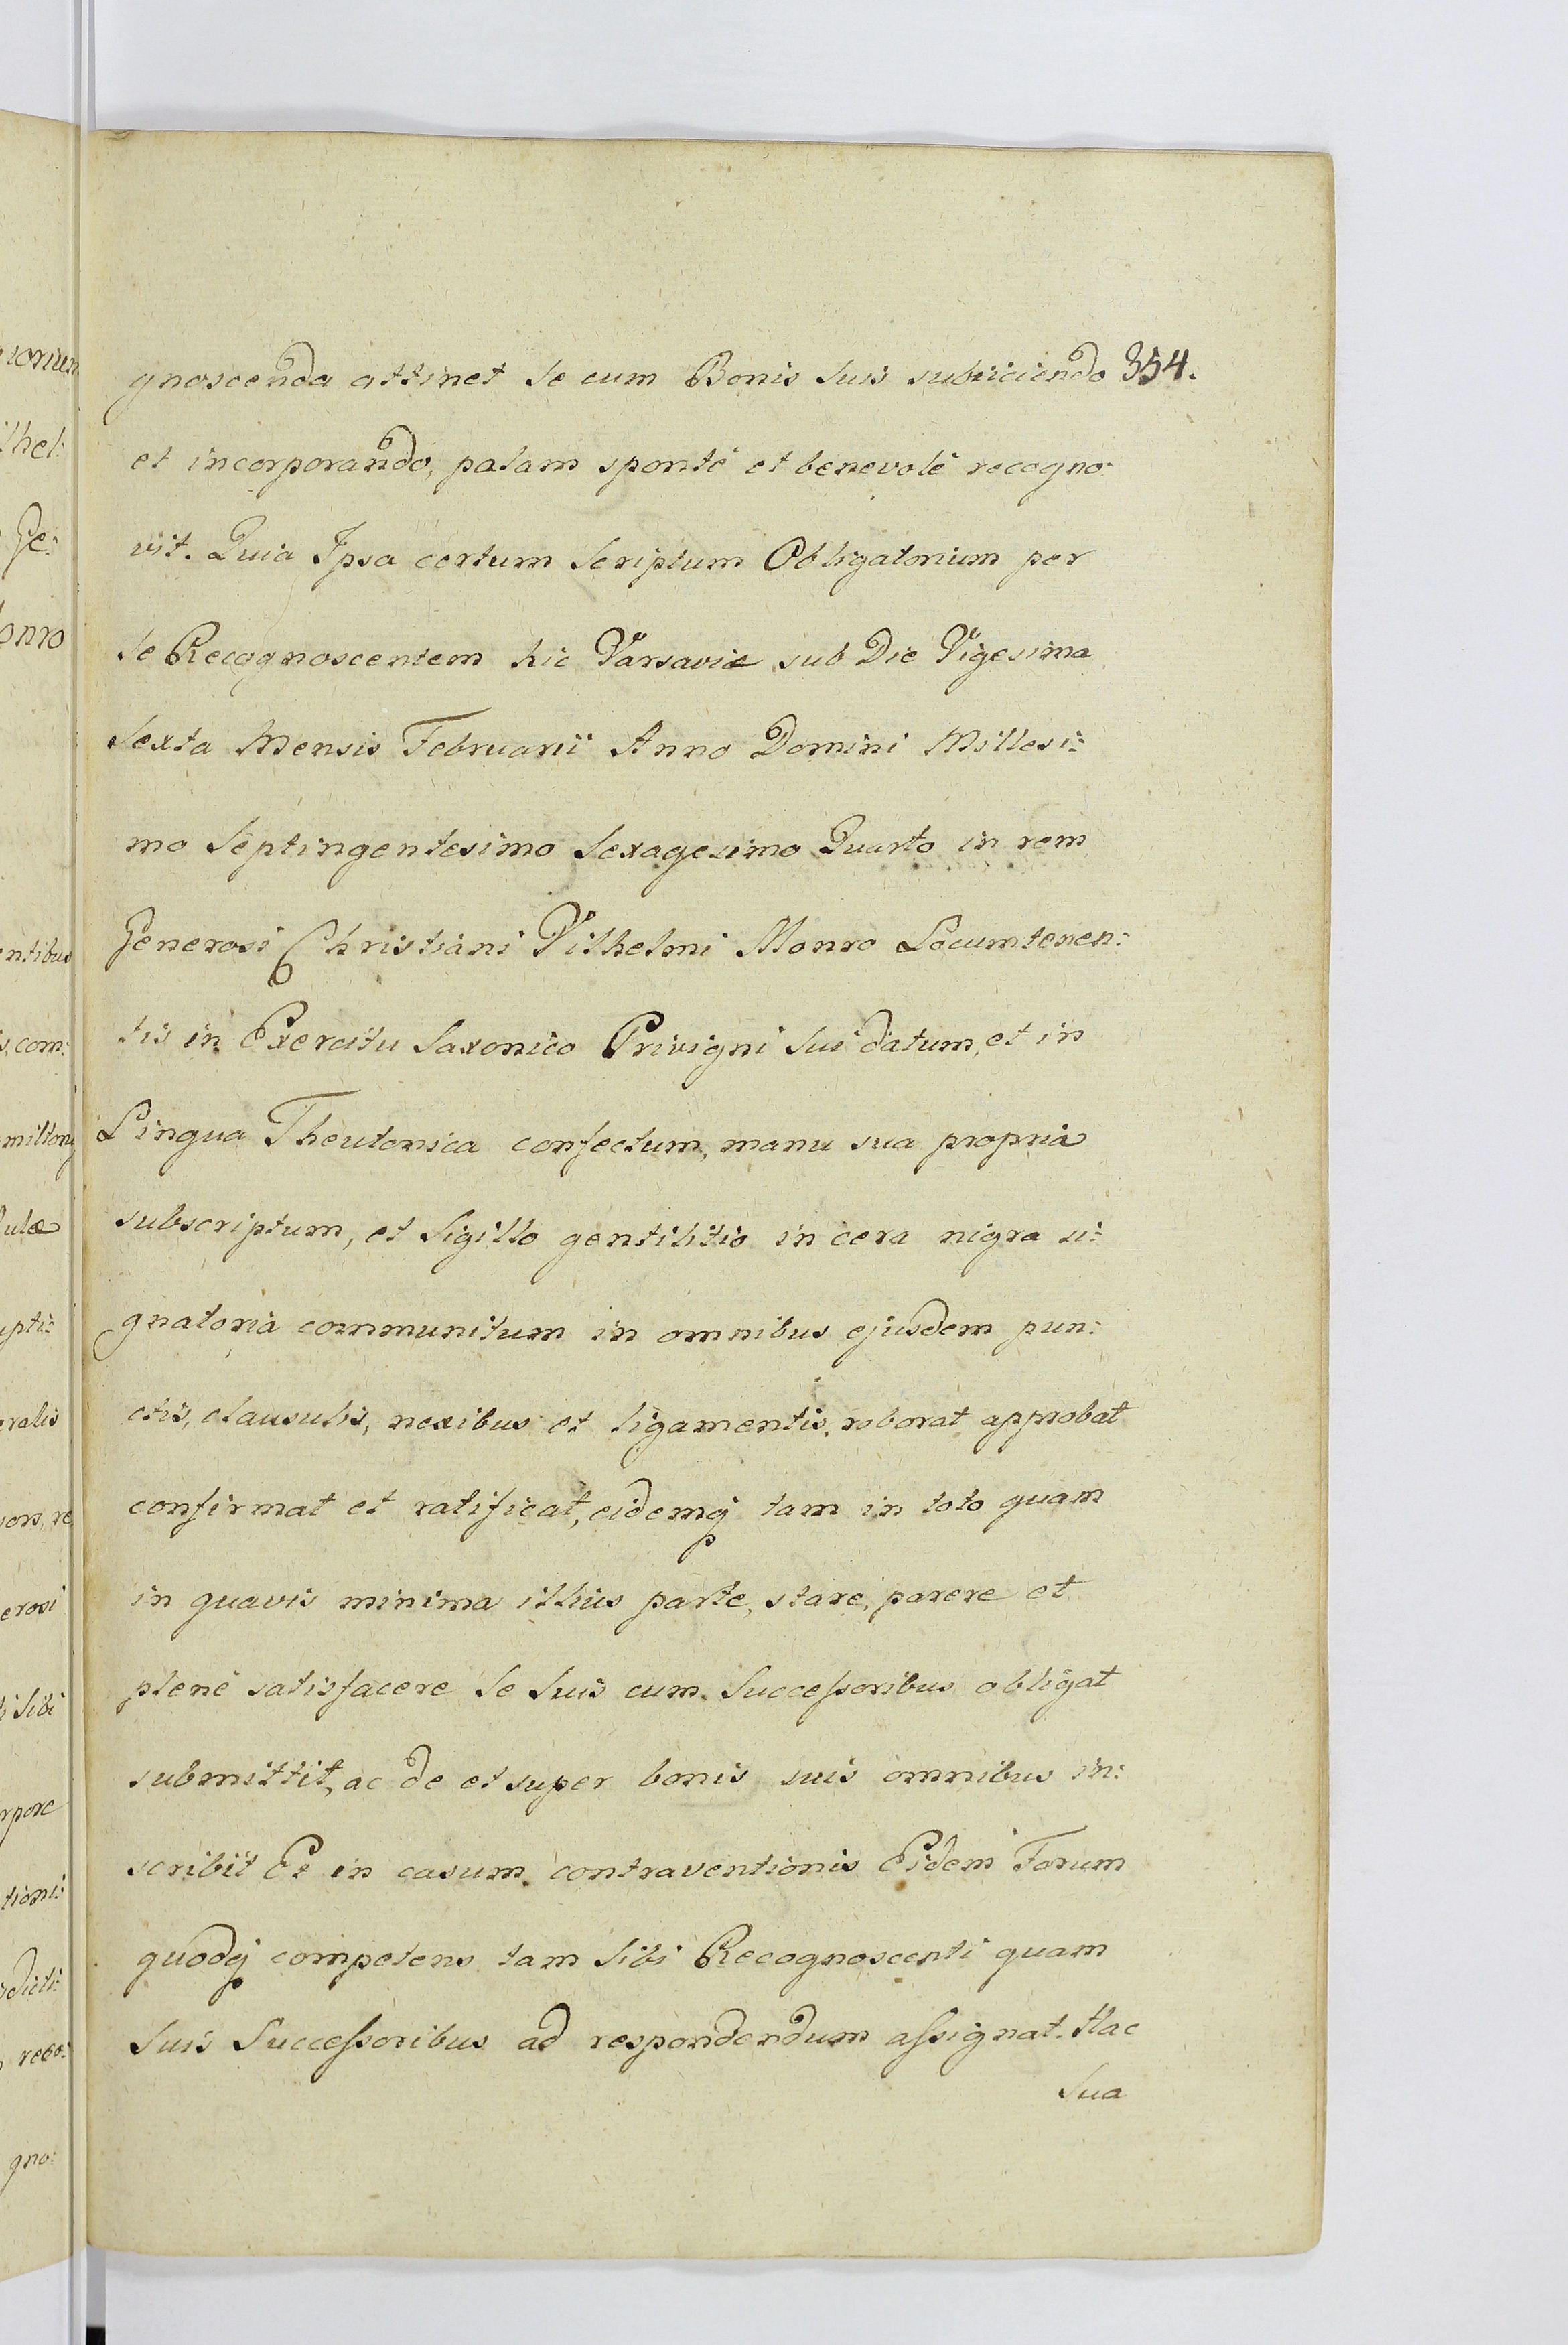 gnoscenda attinet Se cum Bonis Suis subiiciendo 354.
et incorporando, palam spontè et benevolè recogno:
vit. Quia Ipsa certum Scriptum Obligatorium per
Se Recognoscentem hic Varsaviæ sub Die Vigesima
Sexta Mensis Februarii Anno Domini Millesi:
mo Septingentesimo Sexagesimo Quarto in rem
Generosi Christiani Vilhelmi Monro Locumtenen:
tis in Exercitu Saxonico Privigni Sui datum, et in
Lingua Theutonica confectum, manu sua propria
subscriptum, et Sigillo gentilitio in cera nigra si:
gnatoria communitum in omnibus ejusdem pun:
ctis, clausulis, nexibus et ligamentis, roborat approbat
confirmat et ratificat, eidemq́ tam in toto quam
in quavis minima illius parte, stare, parere et
plenè satisfacere Se Suis cum Succeſsoribus obligat
submittit, ac de et super bonis suis omnibus in:
scribit Et in casum contraventionis Eidem Forum
quodq́ competens tam Sibi Recognoscenti quam
Suis Succeſsoribus ad respondendum aſsignat. Hac
Sua
onro
ntibus
com:
ulæ
ralis
erosi
Sibi
tioni:
gno: